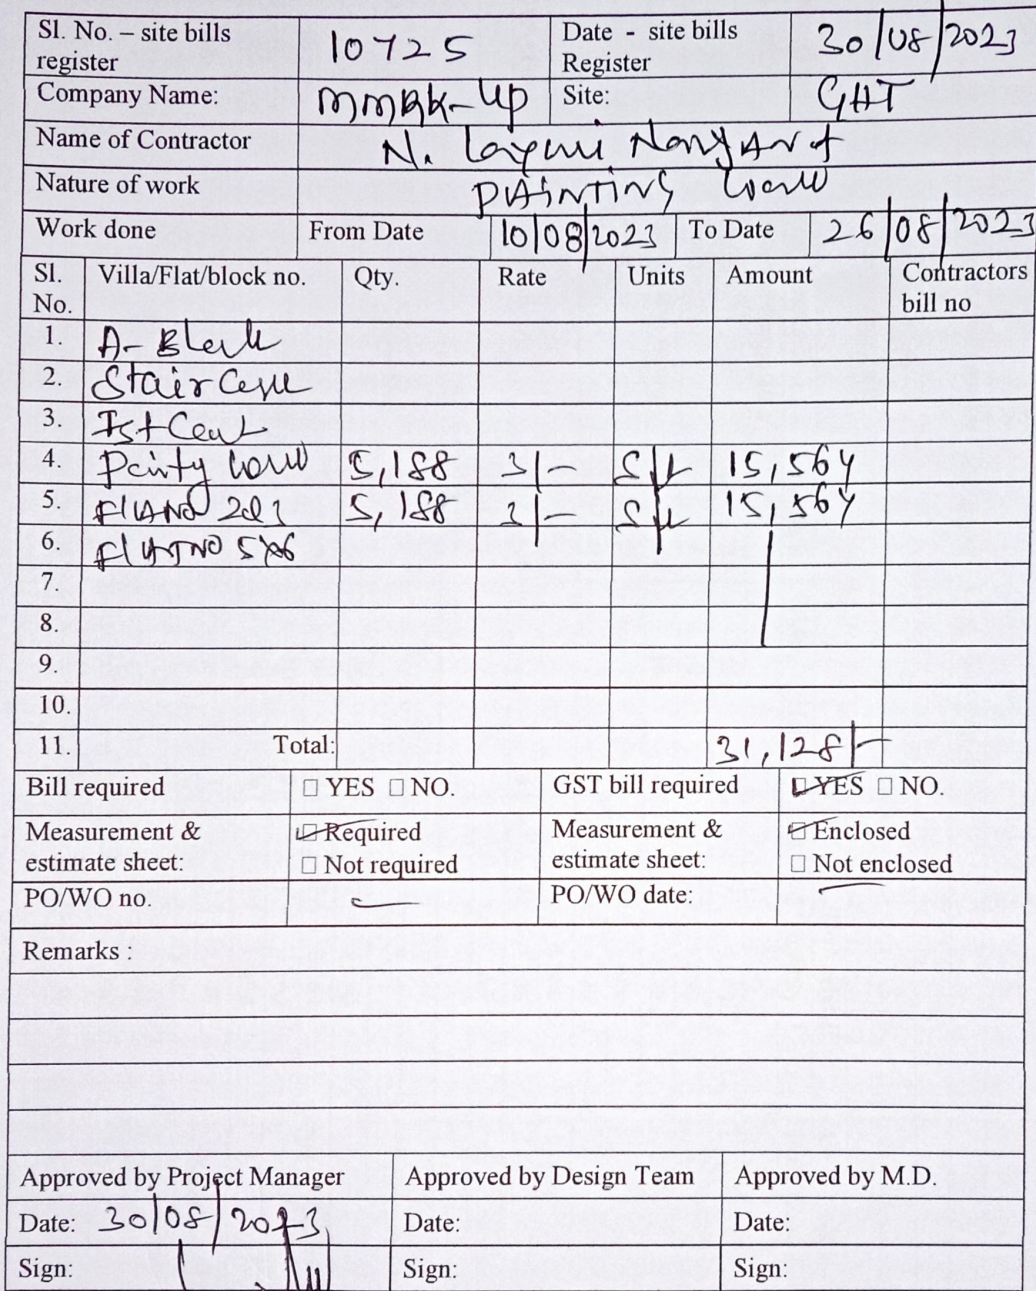 Sl. No. – site bills register 10725 Date - site bills Register 30/08/2023
Company Name: Site: GHT
Name of Contractor N.
Nature of work PAINTING
Work done From Date 10/08/2023 To Date 26/08/2023
Sl. No. Villa/Flat/block no. Qty. Rate Units Amount Contractors bill no
1. A- Block
2. Staircase
3. Ist
4. 5,188 3/- sft 15,564
5 203 5,188 3/- sft 15,564
6
7.
8.
9.
10.
11 Total: 31,128/-
Bill required YES NO. GST bill required YES NO.
Measurement & estimate sheet: Required Not required Measurement & estimate sheet: Enclosed Not enclosed
PO/WO no. PO/WO date:
Remarks :
Approved by Project Manager Approved by Design Team Approved by M.D.
Date: 30/08/2023 Date: Date:
Sign: Sign: Sign: